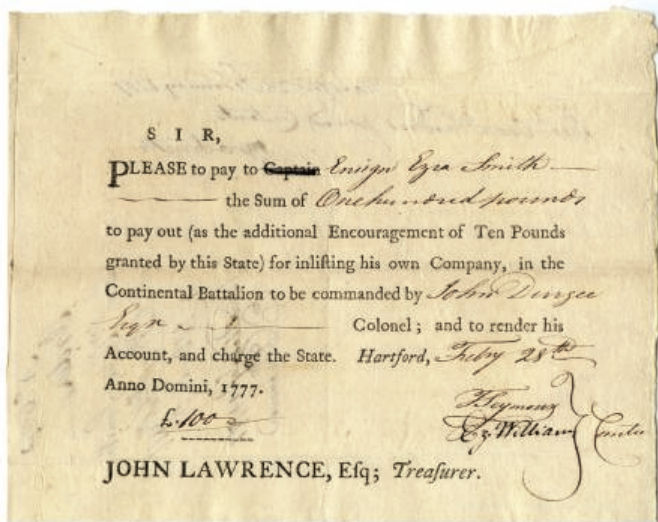 SIR,
PLEASE to pay to Captain Ensign Ezra Smith
the Sum of One hundred pounds
to pay out (as the additional Encouragement of Ten Pounds
granted by this State) for inliſting his own Company, in the
Continental Battalion to be commanded by John Durgee
Esqr Colonel; and to render his
Account, and charge the State. Hartford, Feby 28th
Anno Domini, 1777.
£.100
T Seymour
Ez. Williams Comtee
JOHN LAWRENCE, Eſq; Treaſurer.